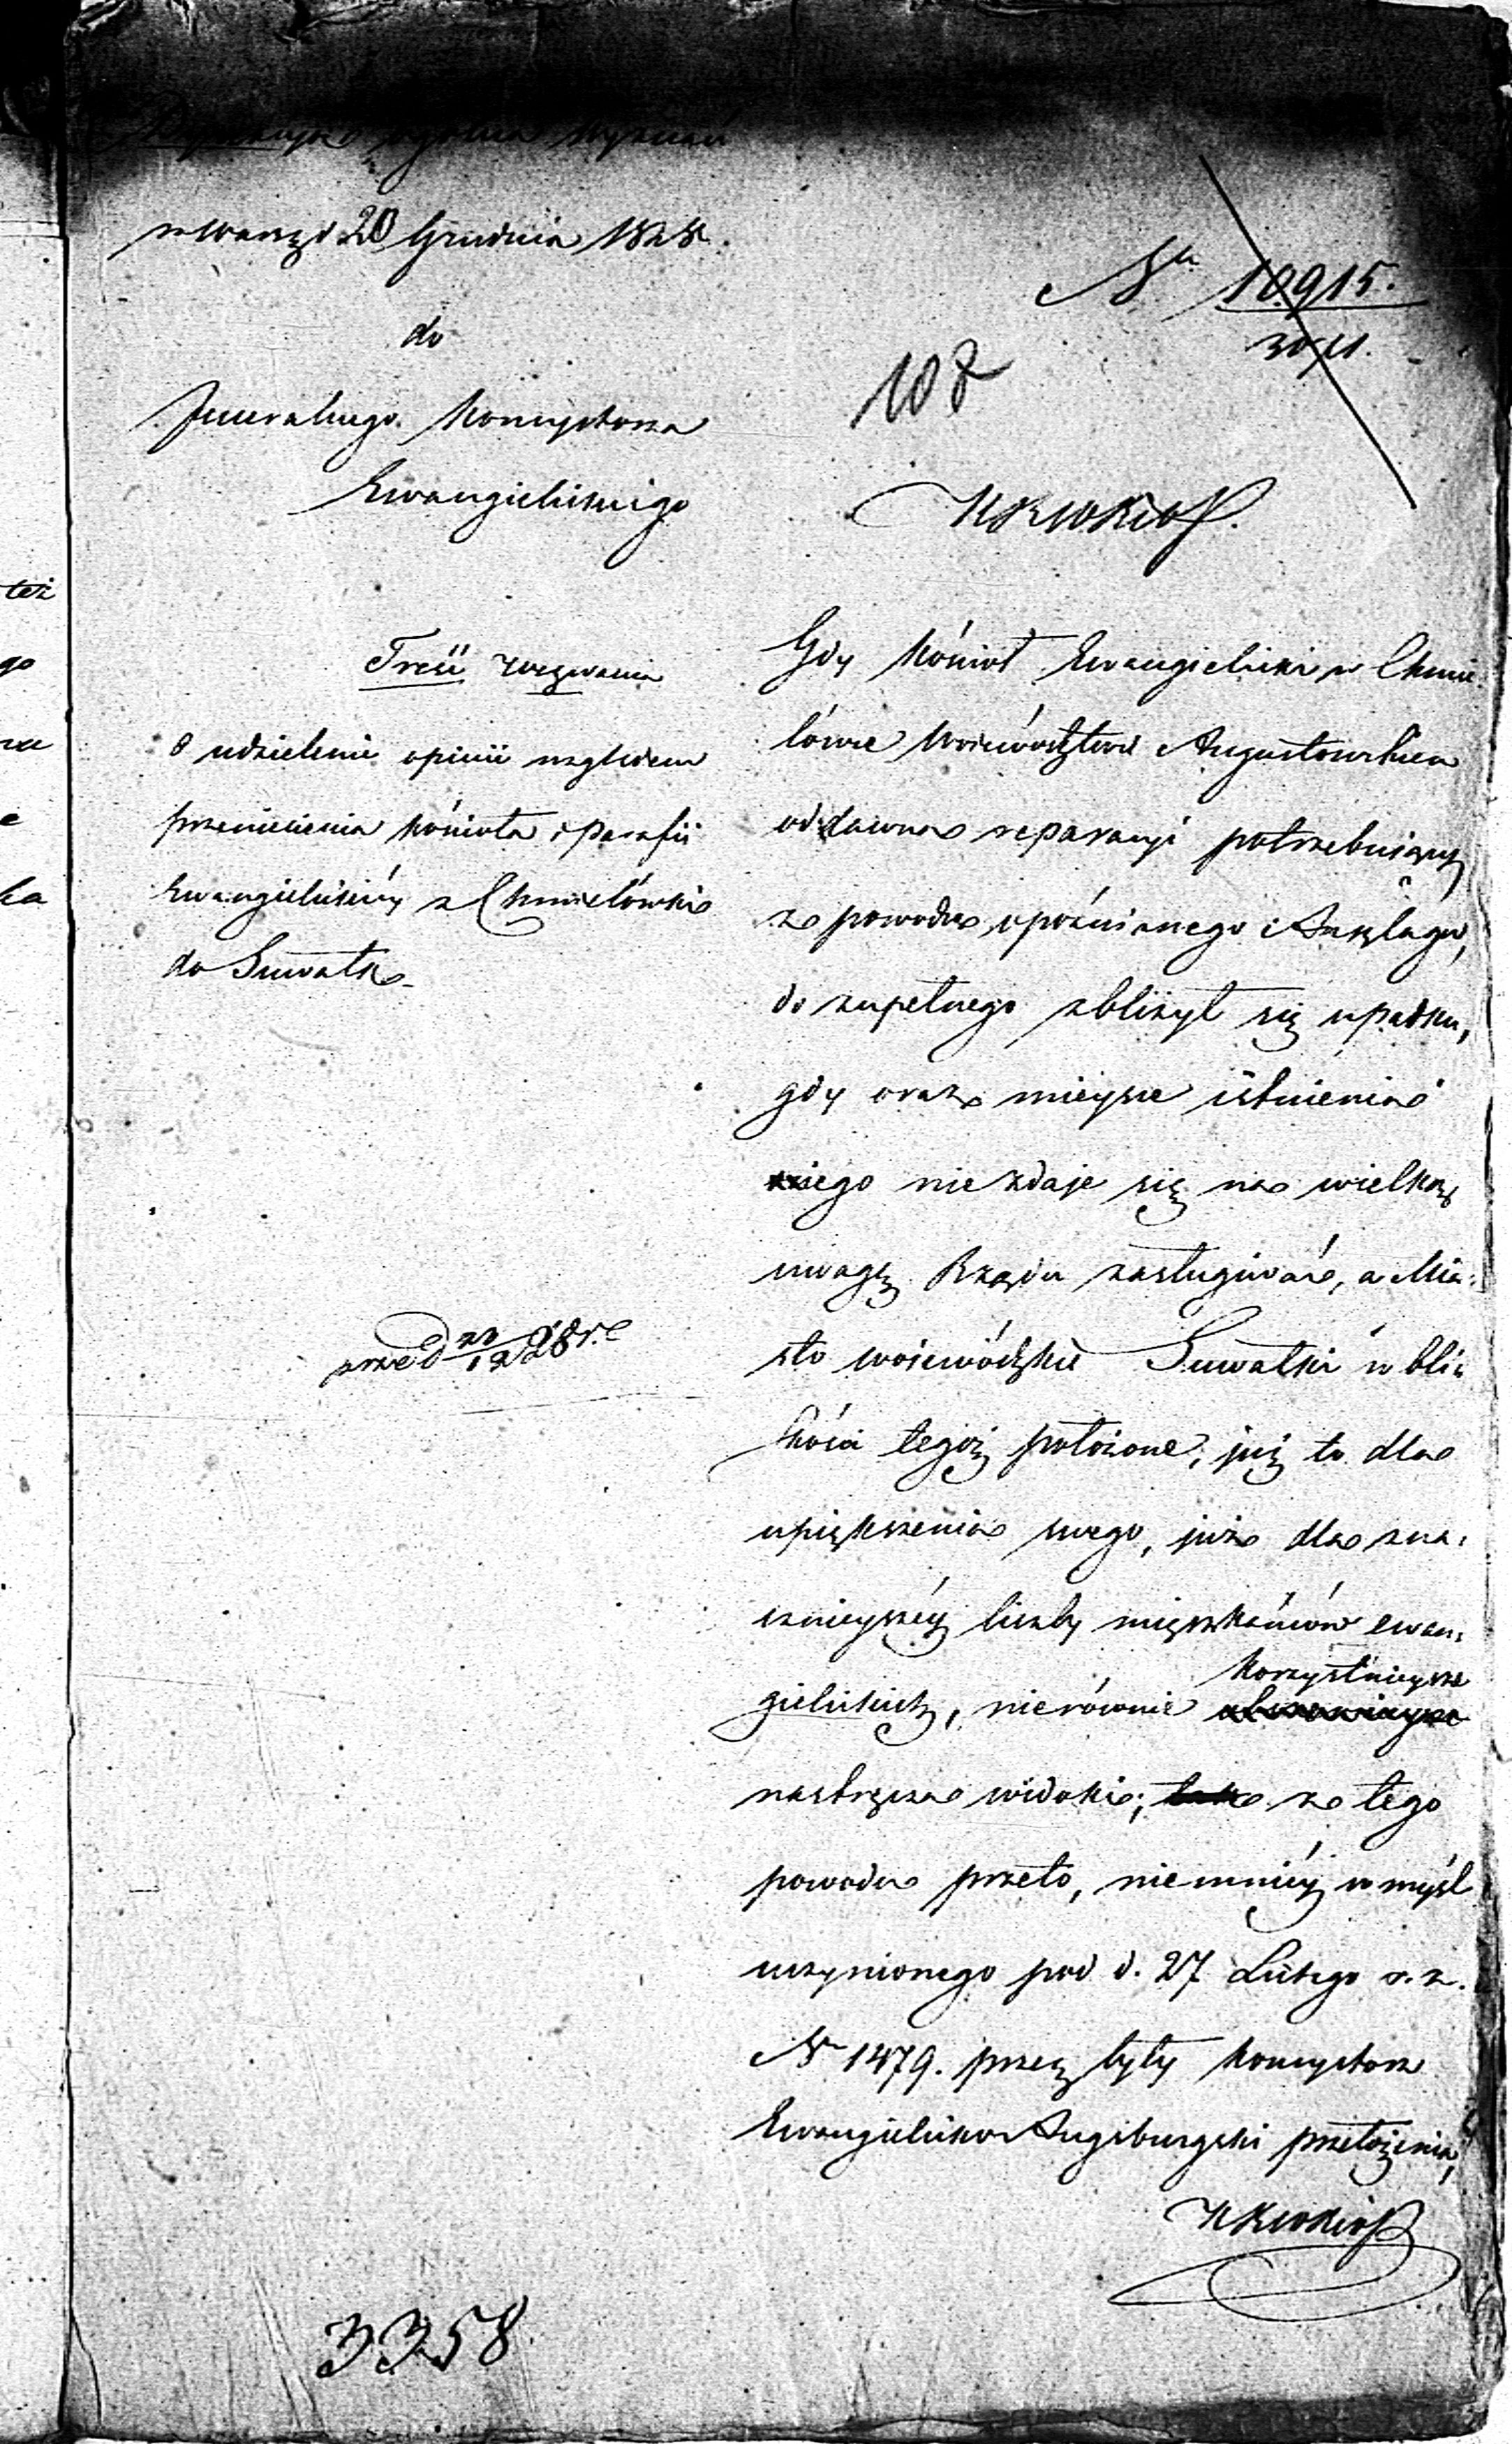 Wyznań
w Warsz. d 20 Grudnia 1828.
do
Jeneralnego Konsystorza
Ewangielickiego
Treść wezwania
O udzielenie opinii względem
przeniesienia kościoła i parafii
Ewangielickiéy z Chmielówki
do Suwałk
Nr 10915.
30/11.
108
KRWRiOP.
Gdy kościoł Ewangielicki w Chmie-
lówce Woiewództwa Augustowskiem
oddawna reparacyi potrzebuiący
z powodu opóźnianego Anszlagu,
do zupełnego zbliżył się upadku,
gdy oraz mieysce istnienia
iego nie zdaje się na wielką
uwagę Rządu zasługiwać, a Mia-
sto woiewódzkie Suwałki w bliz-
kości tegoż położone, już to dla
upiększenia swego, już dla zna-
cznieyszéy liczby mięszkańców ewan-
gielickich, nierównie korzystnieysze
nastręcza widoki; z tego
powodu przeto, niemniéy w myśl
uczynionego pod d. 27 Lutego r. z.
Nr 1479. przez były Konsystorz
Ewangielicko Augsburgski przełożenia,
KRWRiOP
przed 23/12 828 r.
3358
też
go
ka